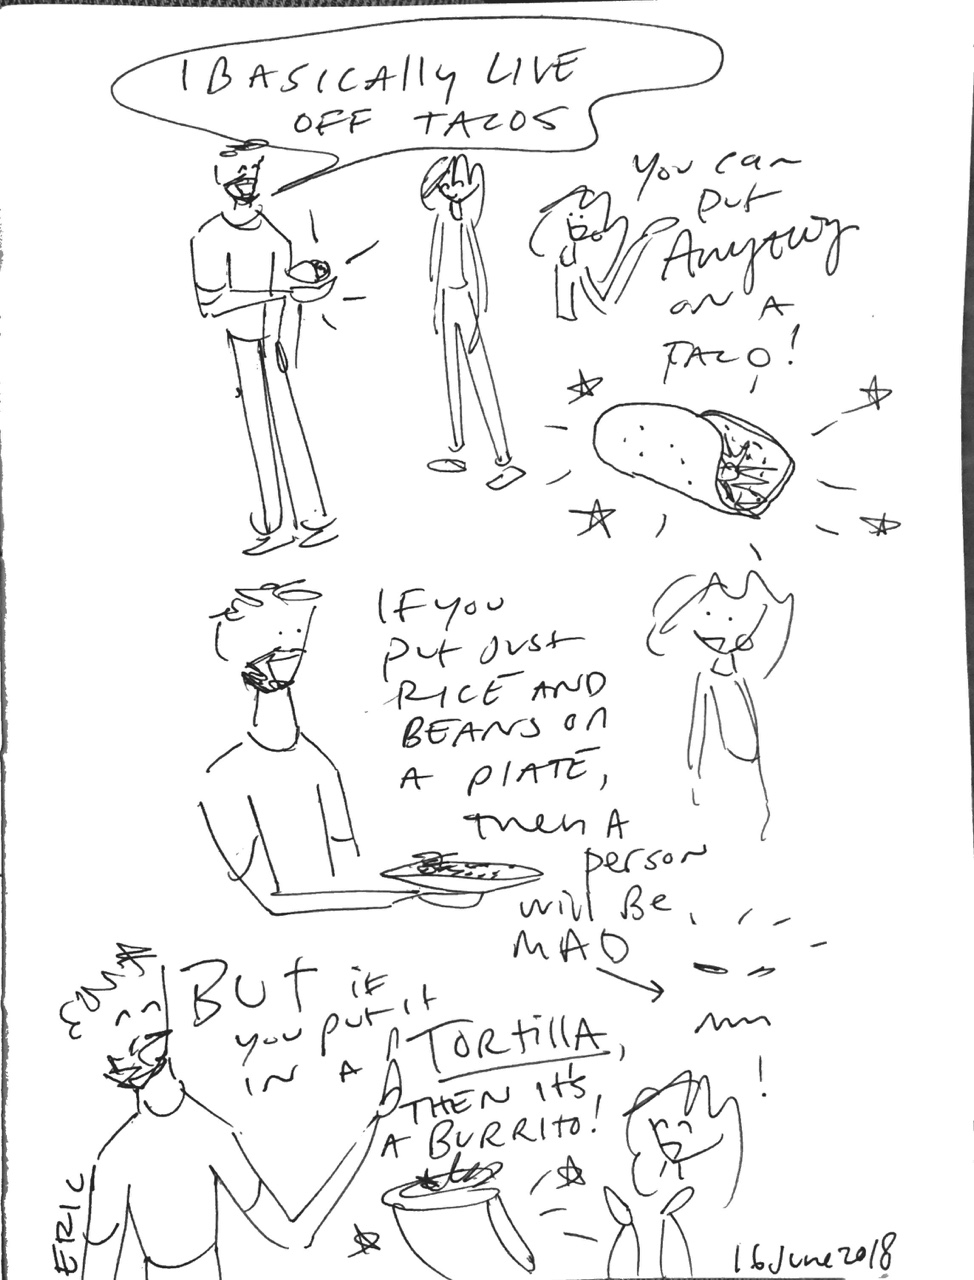 I BASICALLY LIVE
OFF TACOS
You can
put
Anything
on A
TACO!
IF you
put Just
RICE AND
BEANS on
A PLATE,
then A
person
will BE
MAD
BUT if
you put it
IN A TORTILLA,
THEN it's
A BURRITO!
ERIC
16 June 2018